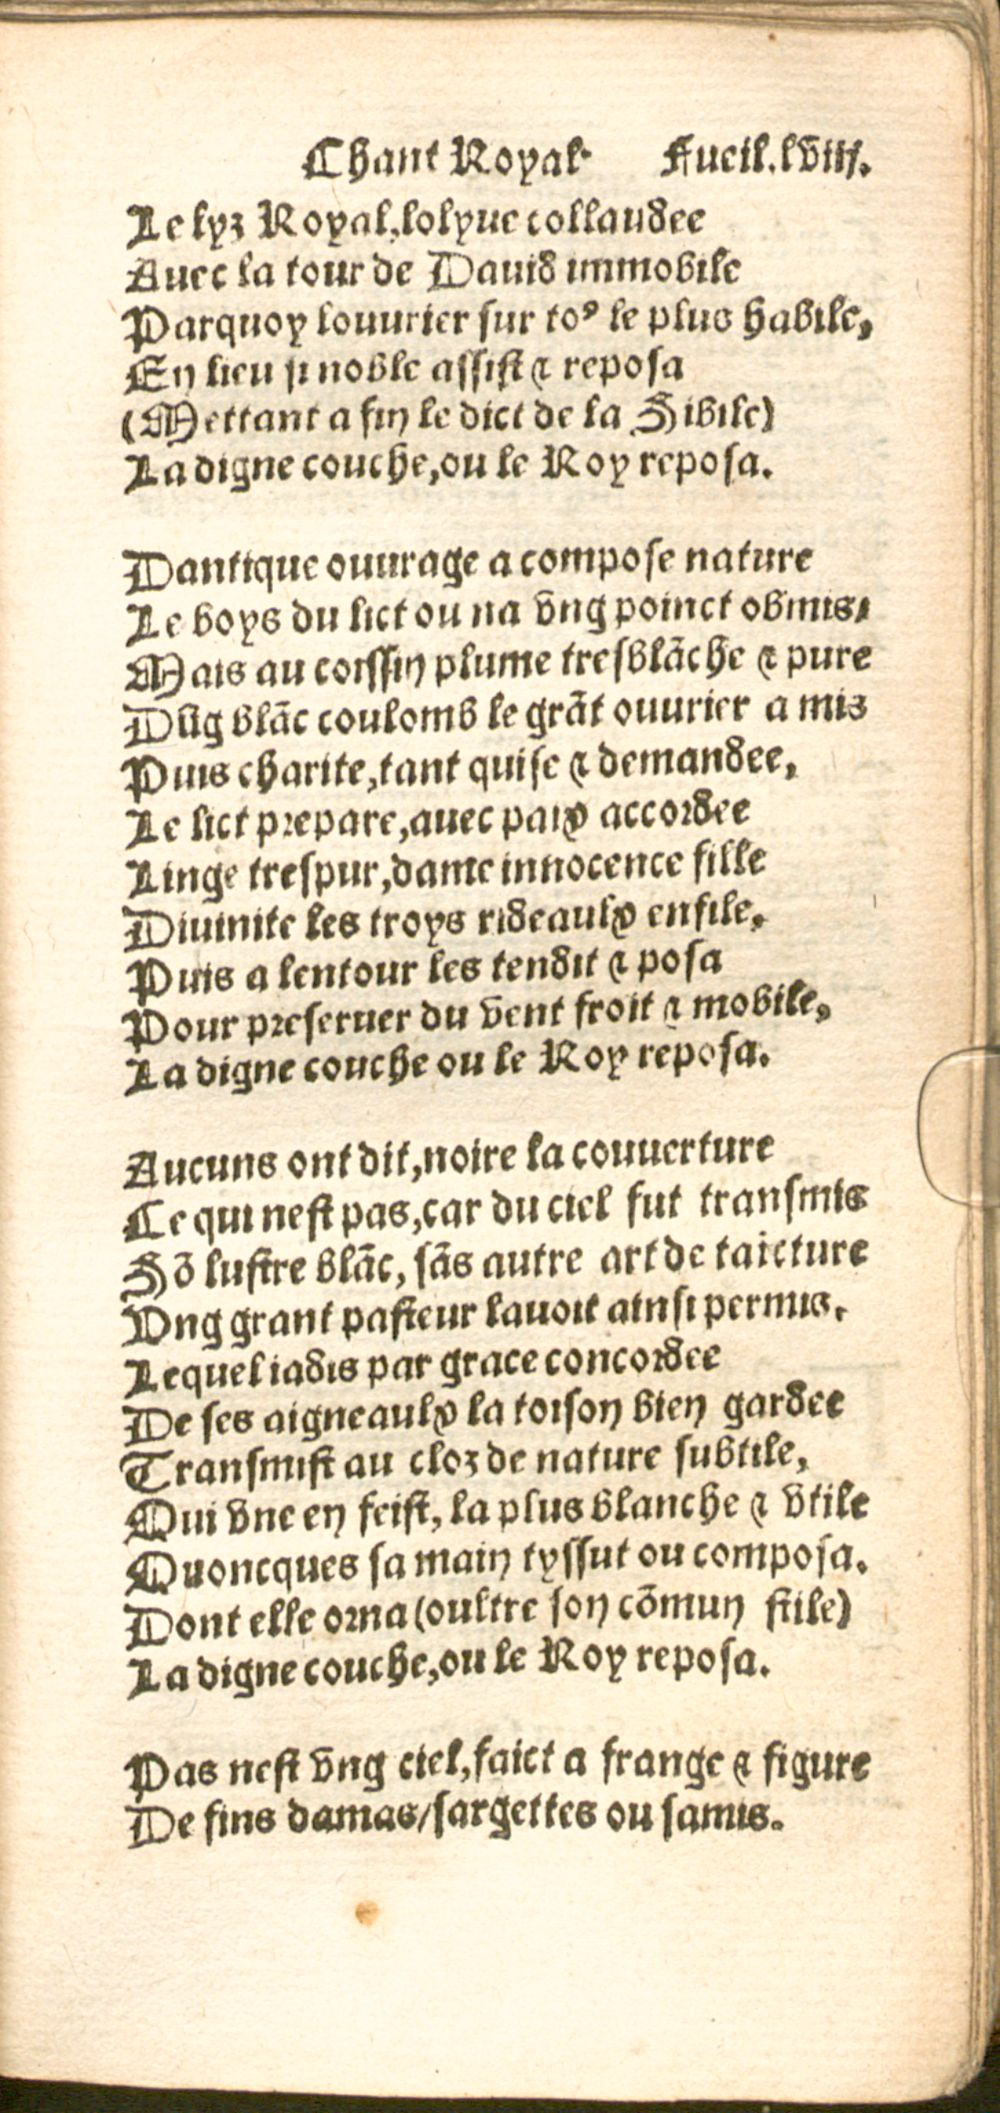 Chant Royal Fueil.lviij.
Le lyz Royal,lolyue collaudee
Auec la tour de Dauid immobile
Parquoy louurier sur toꝰ le plus habile,
En lieu si noble assist & reposa
(Mettant a fin le dict de la Sibile)
La digne couche,ou le Roy reposa.

Dantique ouurage a compose nature
Le boys du lict ou na vng poinct obmis,
Mais au coissin plume tresblãche & pure
Dũg blãc coulomb le grãt ouurier a mis
Puis charite,tant quise & demandee,
Le lict prepare,auec paix accordee
Linge trespur,dame innocence fille
Diuinite les troys rideaulx enfile,
Puis a lentour les tendit & posa
Pour preseruer du vent froit & mobile,
La digne couche ou le Roy reposa.

Aucuns ont dit,noire la couuerture
Ce qui nest pas,car du ciel fut transmis
Sõ lustre blãc, sãs autre art de taicture
Vng grant pasteur lauoit ainsi permis.
Lequel iadis par grace concordee
De ses aigneaulx la toison bien gardee
Transmist au cloz de nature subtile,
Qui vne en feist, la plus blanche & vtile
Quoncques sa main tyssut ou composa.
Dont elle orna (oultre son cõmun stile)
La digne couche,ou le Roy reposa.

Pas nest vng ciel,faict a frange & figure
De fins damas/sargettes ou samis.